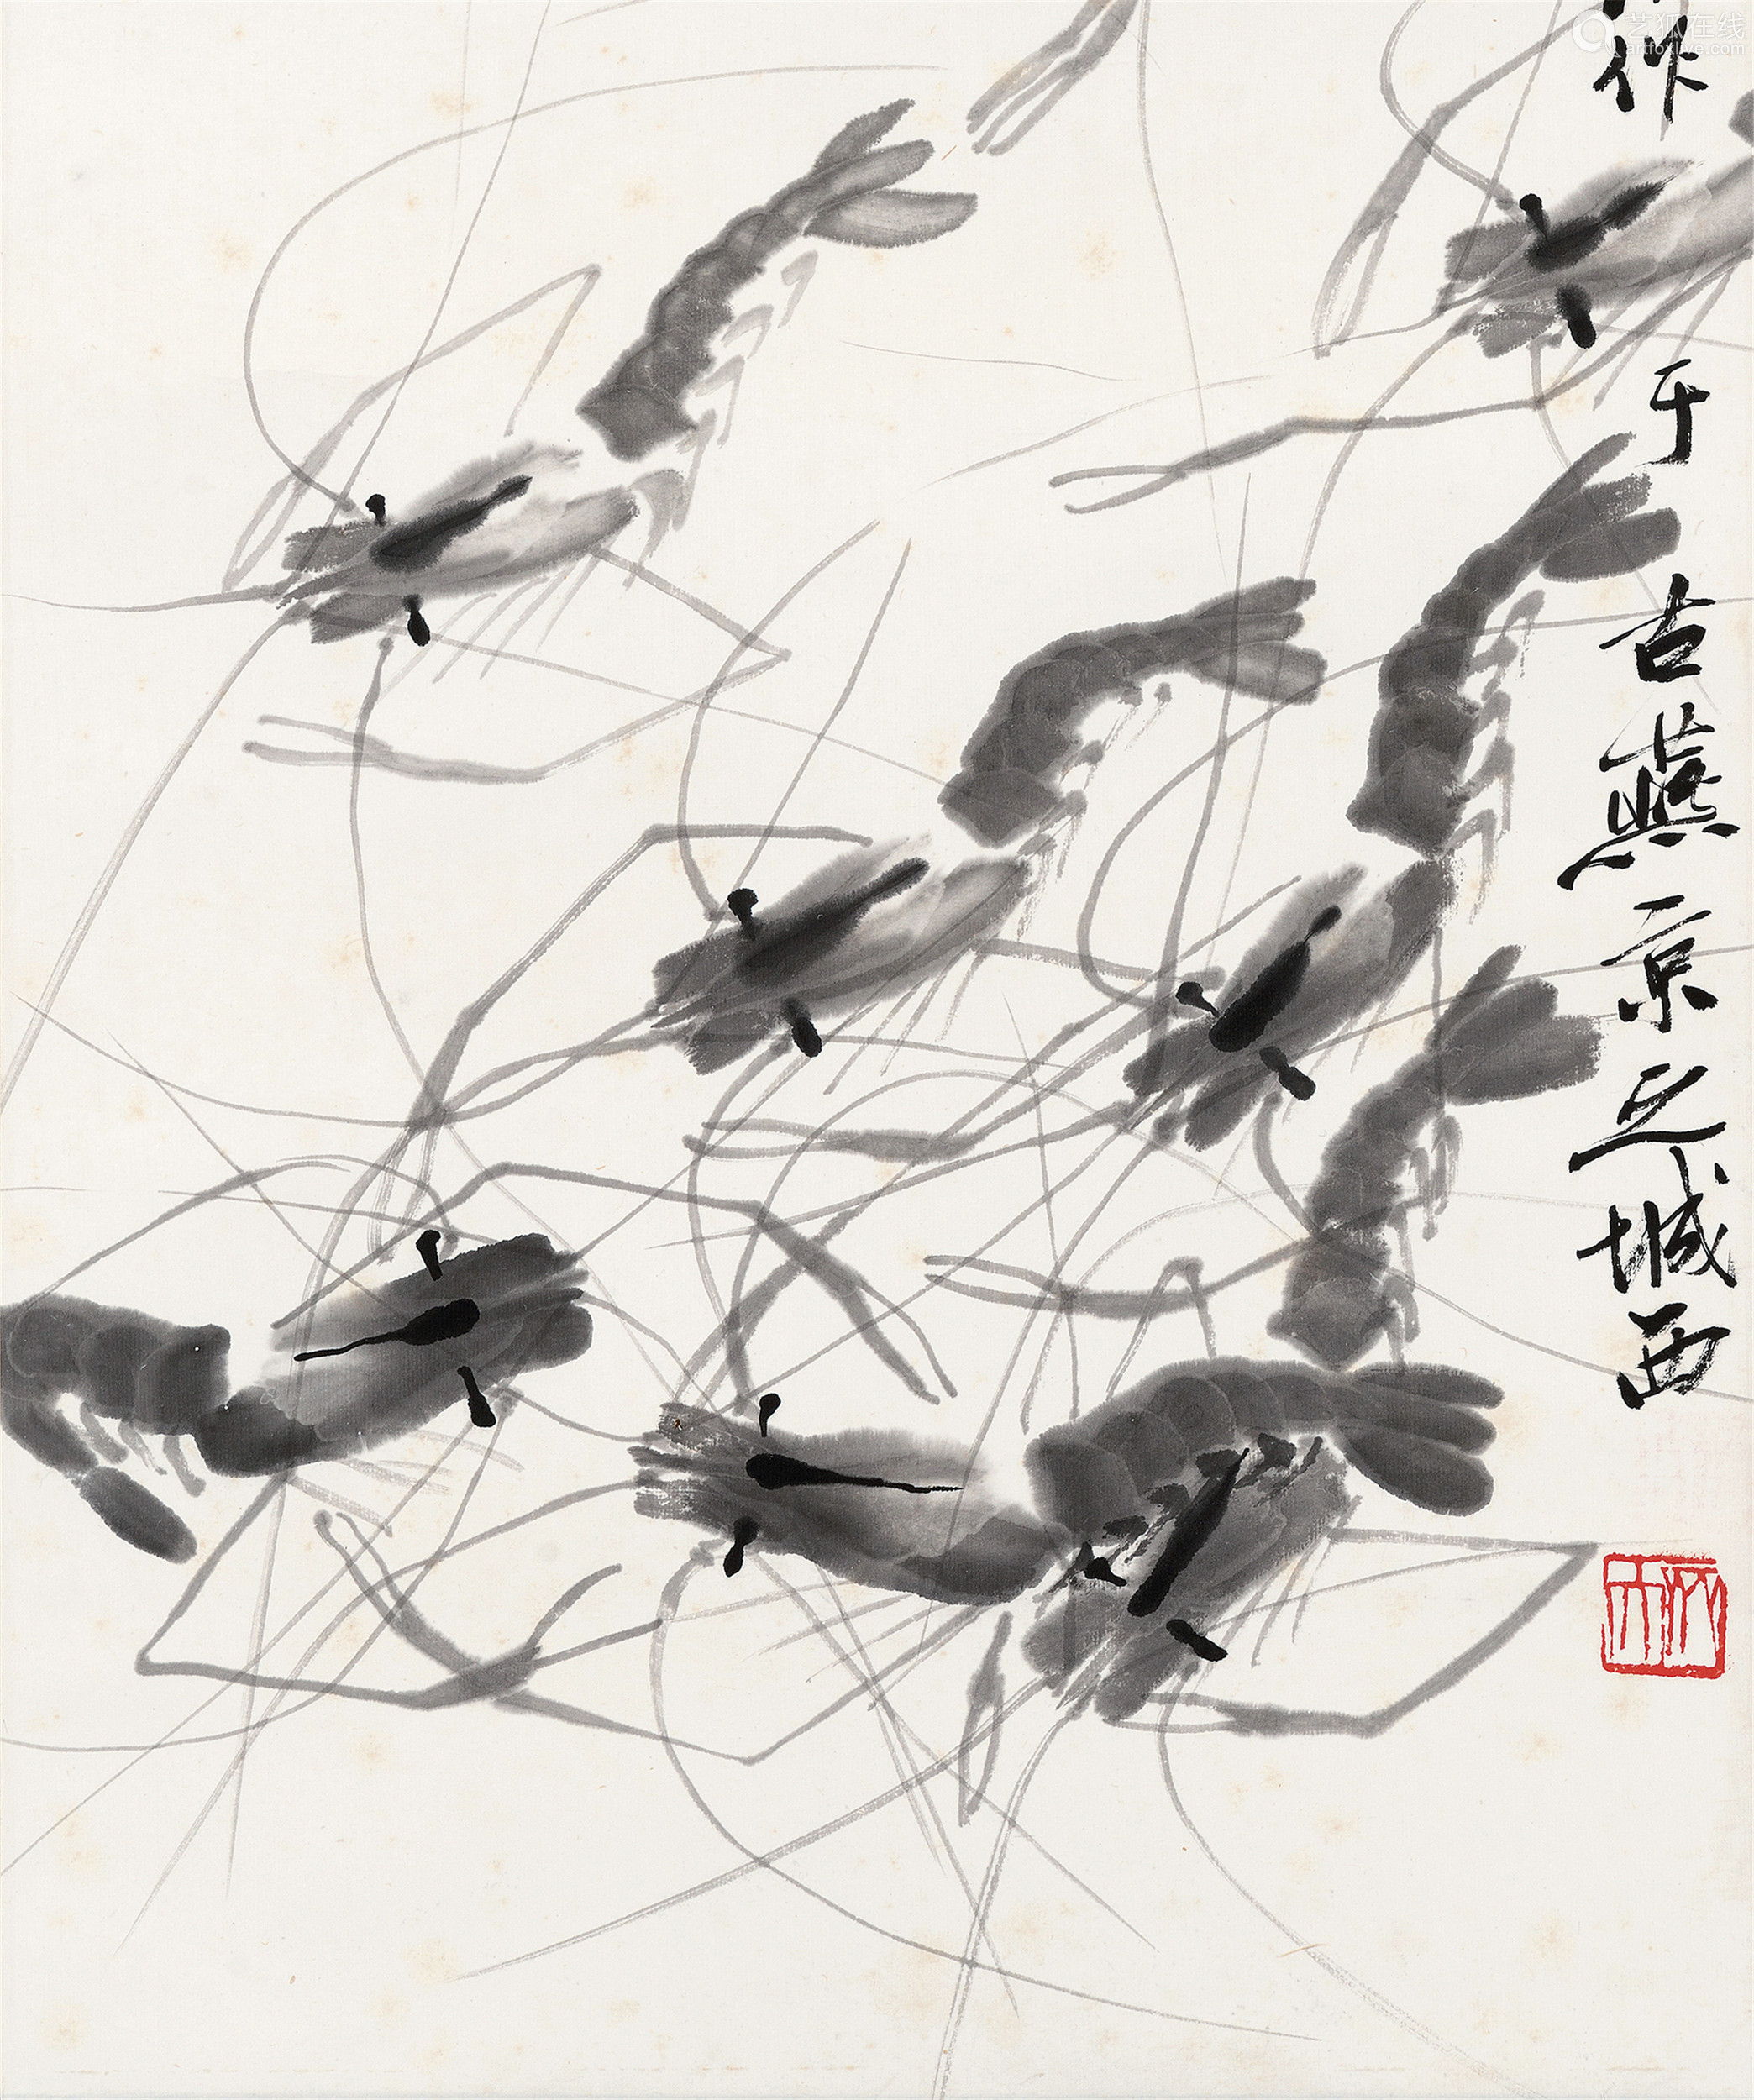 艺狐在线
artfoxlive.com
作于古燕京之城西